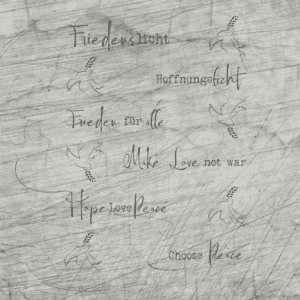 Friedenslicht
Hoffnungslicht
Frieden für alle
Make Love, not war
Hope Love Peace
Choose Peace